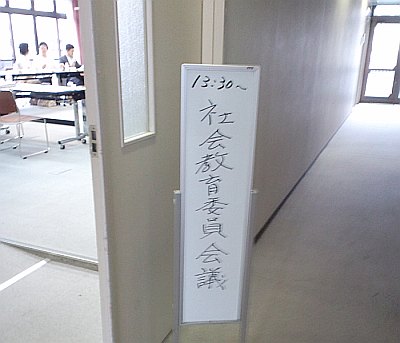 13:30～
社会教育委員会議